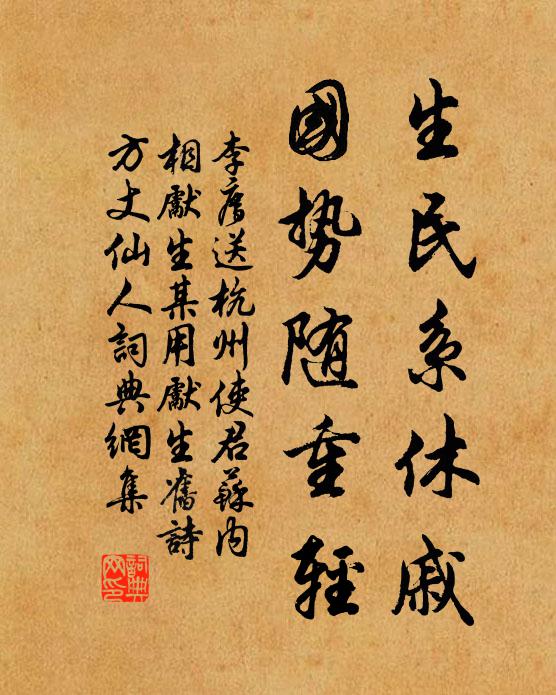 生民系休戚
國势随重輕
李廌送杭州使君蘇内
相獻生某用獻生舊詩
方丈仙人詞典網集
詞典
网印